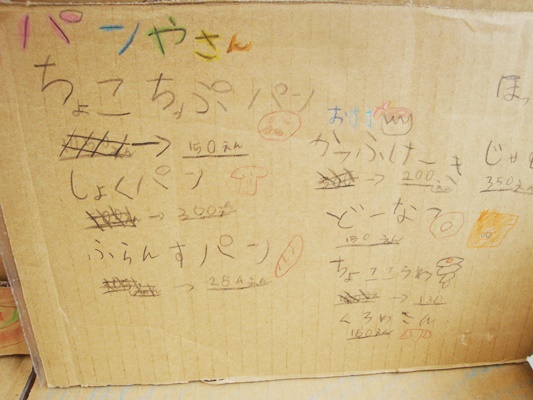 パンやさん
ちょこちっぷパン
→ 150えん
しょくパン
→ 200えん
ふらんすパン
→ 250えん
おすすめ
かっぷけーき
→ 200えん
どーなつ
150えん
ちょここ
→ 130
くろわっさん
150えん
ほっ
じゃ
350えん